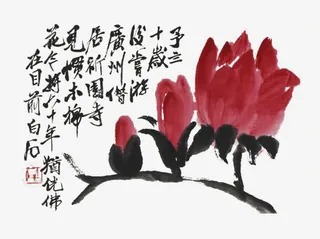 予三
十歲
後嘗游
廣州偕
居祈園寺
見慣木棉
花今將六十年猶恍佛
在目前白石